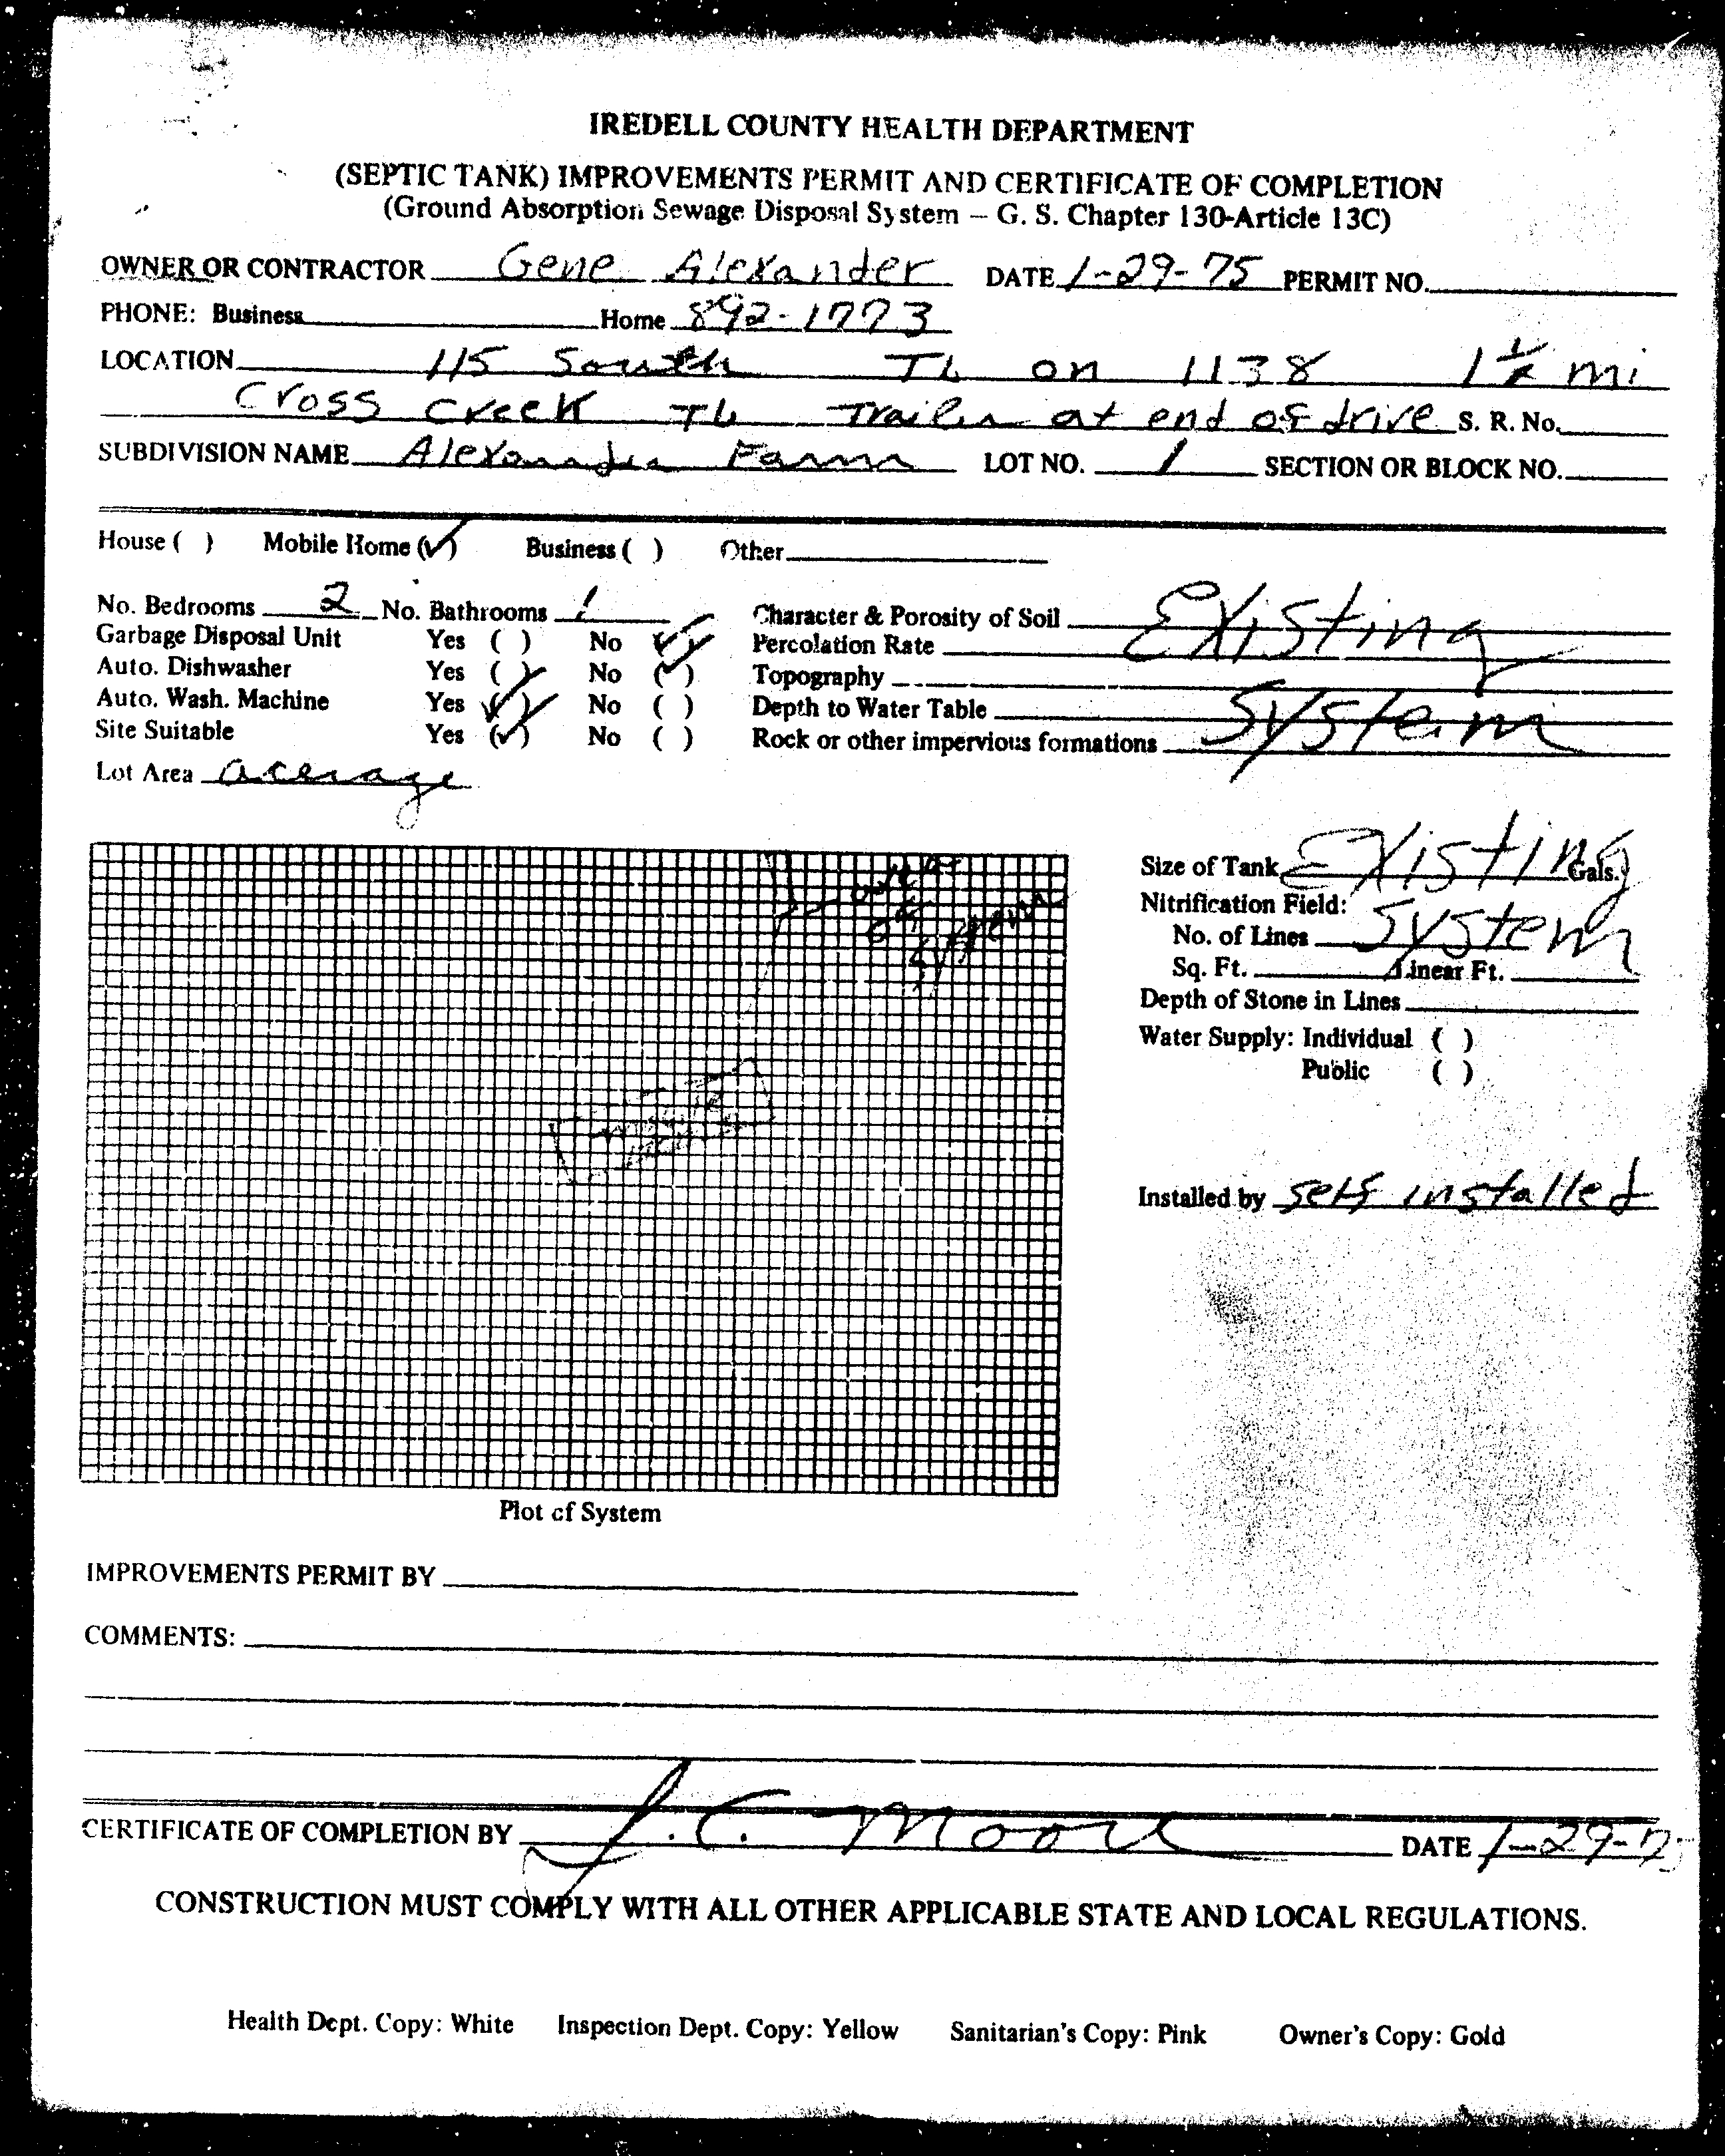 IREDELL COUNTY HEALTH DEPARTMENT
(SEPTIC TANK) IMPROVEMENTS PERMIT AND CERTIFICATE OF COMPLETION
(Ground Absorption Sewage Disposal System – G. S. Chapter 130-Article 13C)
OWNER OR CONTRACTOR Gene Alexander DATE 1-29-75 PERMIT NO.
PHONE: Business Home 892-1773
LOCATION 115 South TL on 1138 1 1/2 mi
Cross Creek TL Trailer at end of drive S. R. No.
SUBDIVISION NAME Alexander Farm LOT NO. 1 SECTION OR BLOCK NO.
House ( ) Mobile Home (✓) Business ( ) Other
No. Bedrooms 2 No. Bathrooms 1 Character & Porosity of Soil Existing
Garbage Disposal Unit Yes ( ) No (✓) Percolation Rate
Auto. Dishwasher Yes ( ) No (✓) Topography
Auto. Wash. Machine Yes (✓) No ( ) Depth to Water Table System
Site Suitable Yes (✓) No ( ) Rock or other impervious formations
Lot Area acerage
Size of Tank Existing Gals.
Nitrification Field: System
No. of Lines
Sq. Ft. Linear Ft.
Depth of Stone in Lines
Water Supply: Individual ( )
Public ( )
Installed by self installed
of
system
Plot of System
IMPROVEMENTS PERMIT BY
COMMENTS:
CERTIFICATE OF COMPLETION BY J. C. Moore DATE 1-29-75
CONSTRUCTION MUST COMPLY WITH ALL OTHER APPLICABLE STATE AND LOCAL REGULATIONS.
Health Dept. Copy: White Inspection Dept. Copy: Yellow Sanitarian's Copy: Pink Owner's Copy: Gold